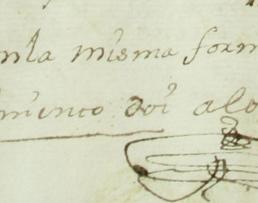 nla misma form
minco doi alo